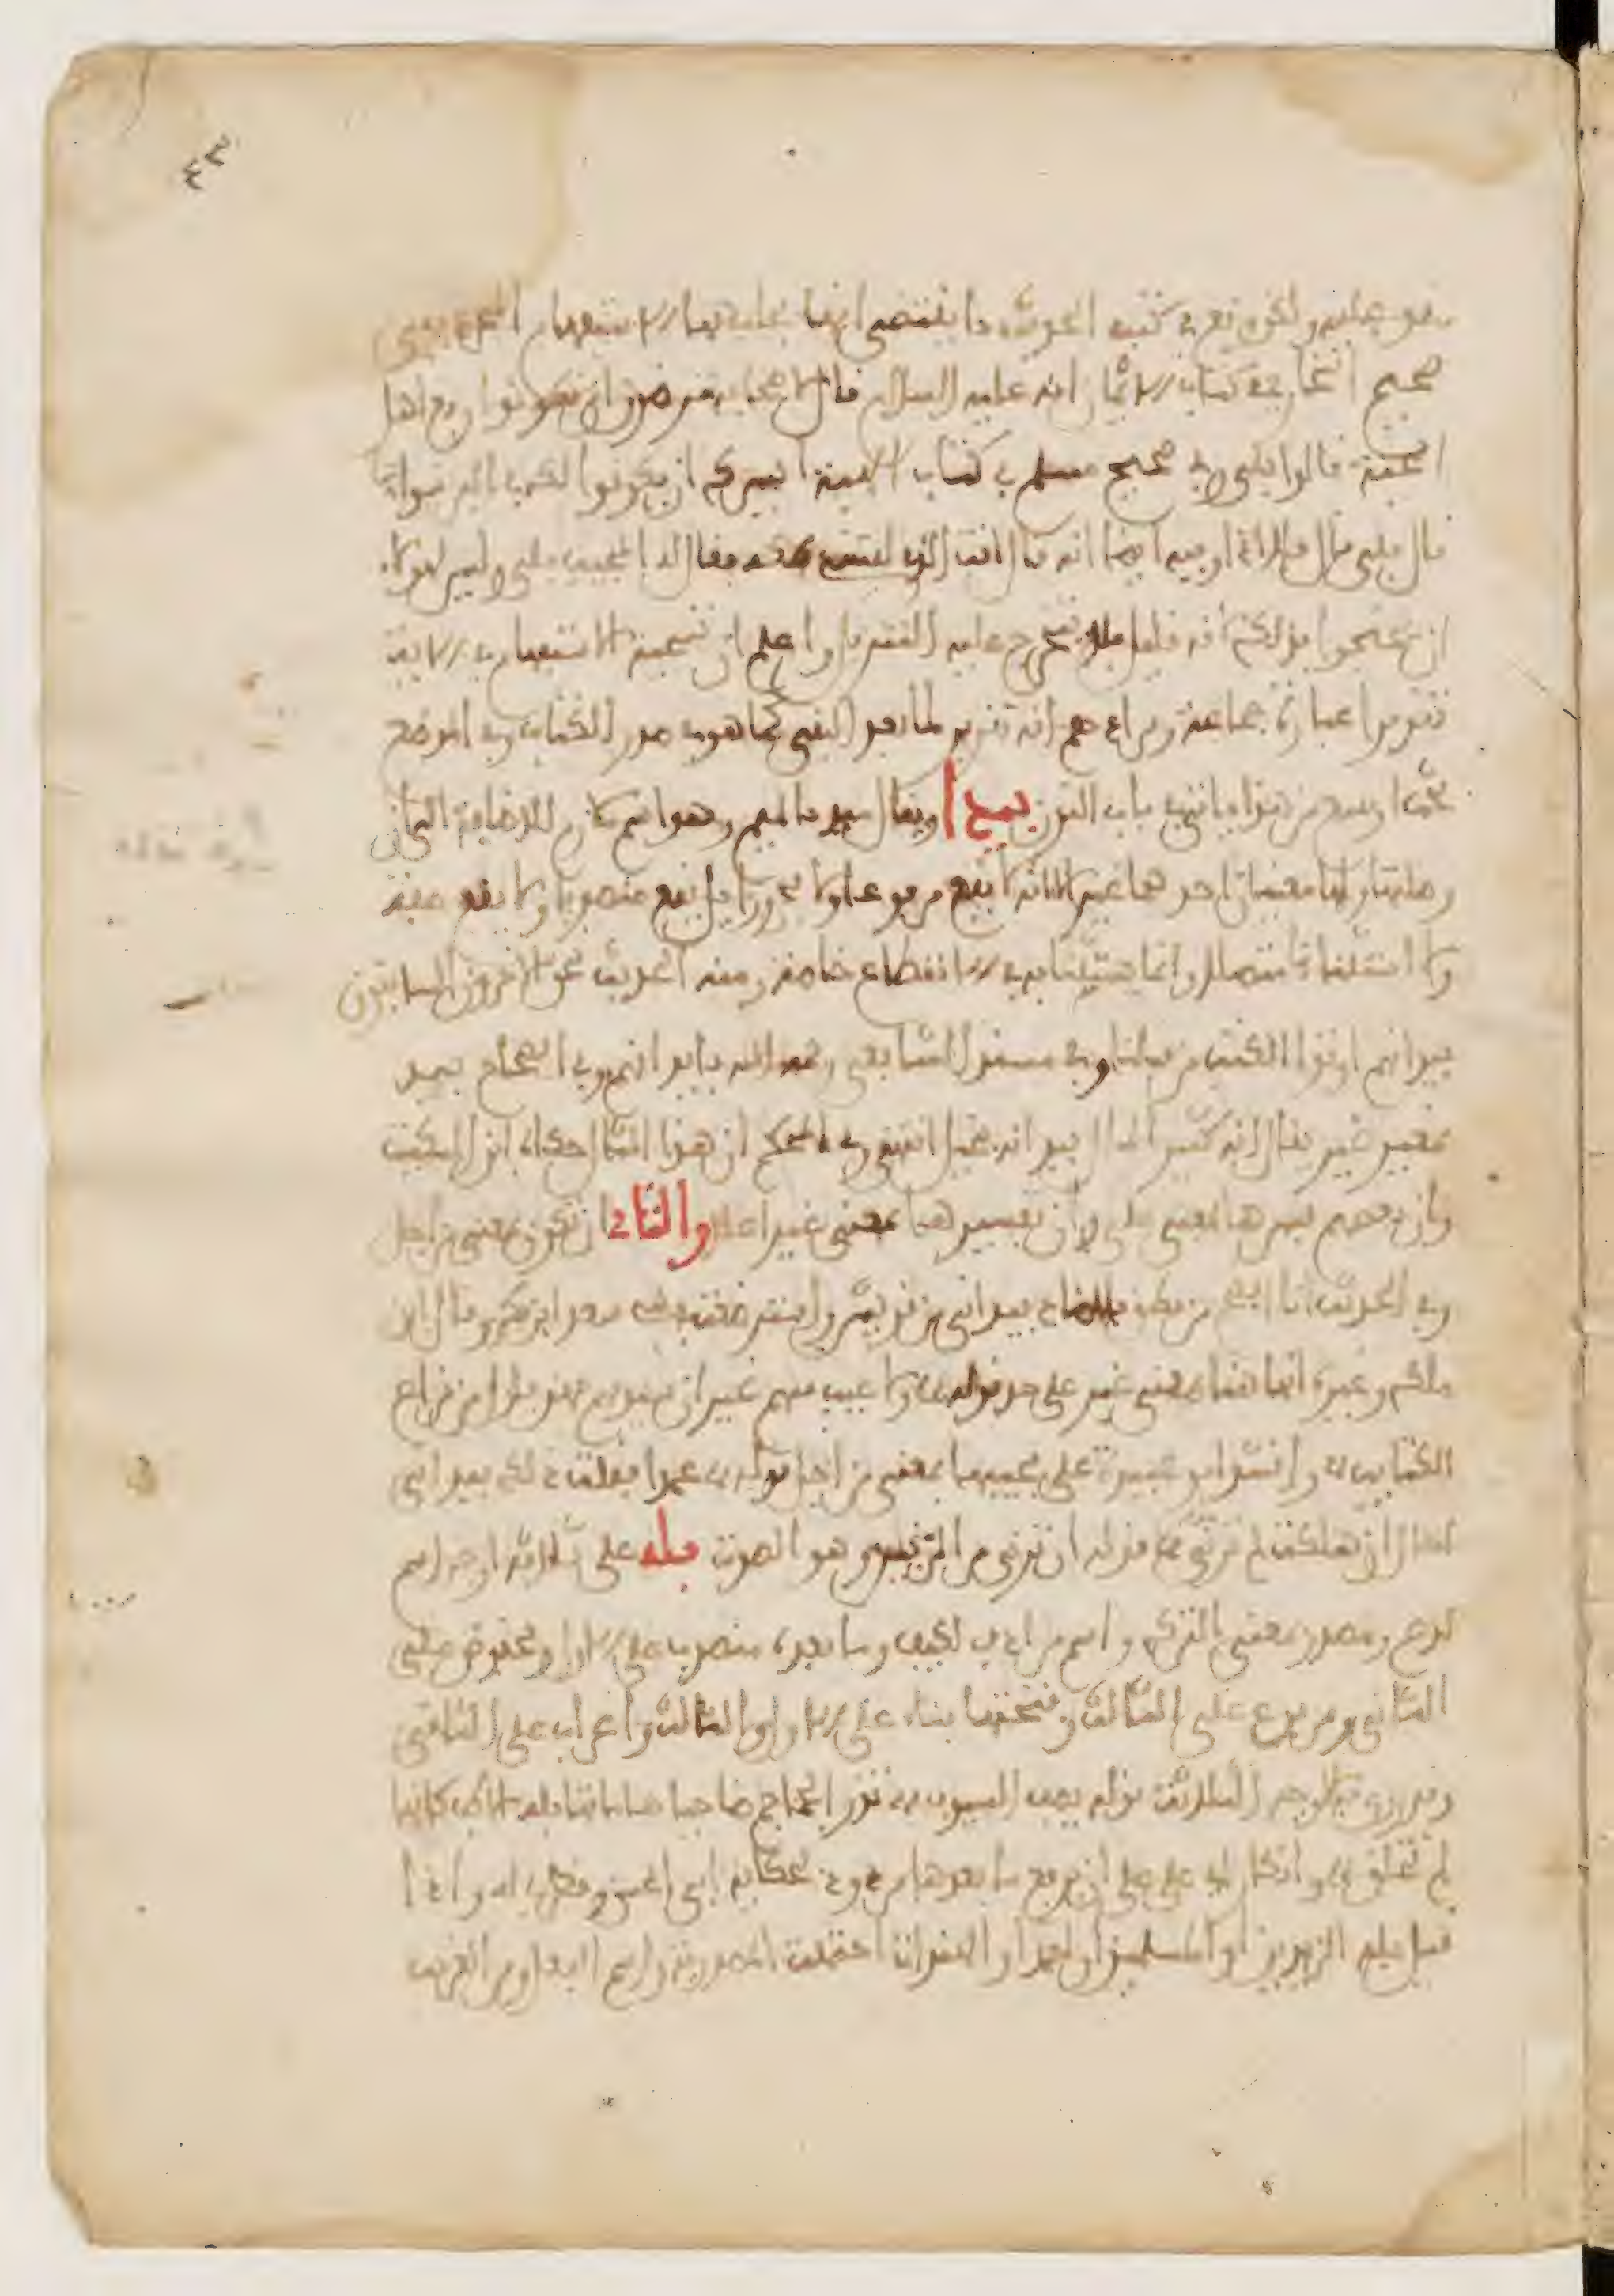 ٤٣
متفق عليه ولكن وقع في كتب الحديث ما يقتضي أنها يجاب بها الاستفهام المجرد ففي
صحيح البخاري في كتاب الإيمان أنه عليه السلام قال لأصحابه أترضون أن تكونوا ربع أهل
الجنة قالوا بلى وفي صحيح مسلم في كتاب الهبة أيسرك أن يكونوا لك في البر سواء
قال بلى قال فلا إذا وفيه أيضا أنه قال أنت الذي لقيتني بمكة فقال له المجيب بلى وليس لهؤلاء
أن يحتجوا بذلك لأنه قليل فلا يتخرج عليه التنزيل واعلم أن تسمية الاستفهام في الآية
تقريرا عبارة جماعة ومرادهم أنه تقرير لما بعد النفي كما هو في صدر الكتاب وفي الموضع
بحث أوسع من هذا يأتي في باب النون بيد ويقال ميد بالميم وهو اسم ملازم للإضافة إلى أن
وصلتها ولها معنيان أحدهما غير إلا أنه لا يقع مرفوعا ولا مجرورا بل يقع منصوبا ولا يقع صفة
ولا استثناء متصلا وإنما يستثنى به في الانقطاع خاصة ومنه الحديث نحن الآخرون السابقون
بيد أنهم أوتوا الكتب من قبلنا وفي مسند الشافعي رحمه الله بايد أنهم وفي الصحاح بيد
بمعنى غير يقال إنه كثير المال بيد أنه بخيل انتهى وفي المحكم أن هذا المثال حكاه ابن السكيت
وأن بعضهم فسرها بمعنى على وأن تفسيرها بمعنى غير أعلا والثاني أن تكون بمعنى من أجل
وفي الحديث أنا أفصح من نطق بالضاد بيد أني من قريش واسترضعت في سعد ابن بكر وقال ابن
ملك وغيره أنها هنا بمعنى غير على حد قوله ولا عيب فيهم غير أن سيوفهم بهن فلول من قراع
الكتايب وأنشد أبو عبيدة على مجيئها بمعنى من أجل قوله عمدا فعلت ذاك بيد أني
إخال أن هلكت لم ترني وقوله أن ترني من الرنين وهو الصوت بله على ثلاثة أوجه اسم
لدع ومصدر بمعنى الترك واسم مرادف لكيف وما بعدها منصوب على الأول ومخفوض على
الثاني ومرفوع على الثالث وفتحتها بناء على الأول والثالث وإعراب على الثاني
وقد روي بالأوجه الثلاثة قوله يصف السيوف تذر الجماجم ضاحيا هاماتها بله الأكف كأنها
لم تخلق وإنكار أبي علي أن يرتفع ما بعدها مردود بحكاية أبي الحسن وقطرب له وإذا
قيل بله الزيدين أو المسلمين أو أحمد أو الهندات احتملت المصدرية واسم الفعل ومن الغريب